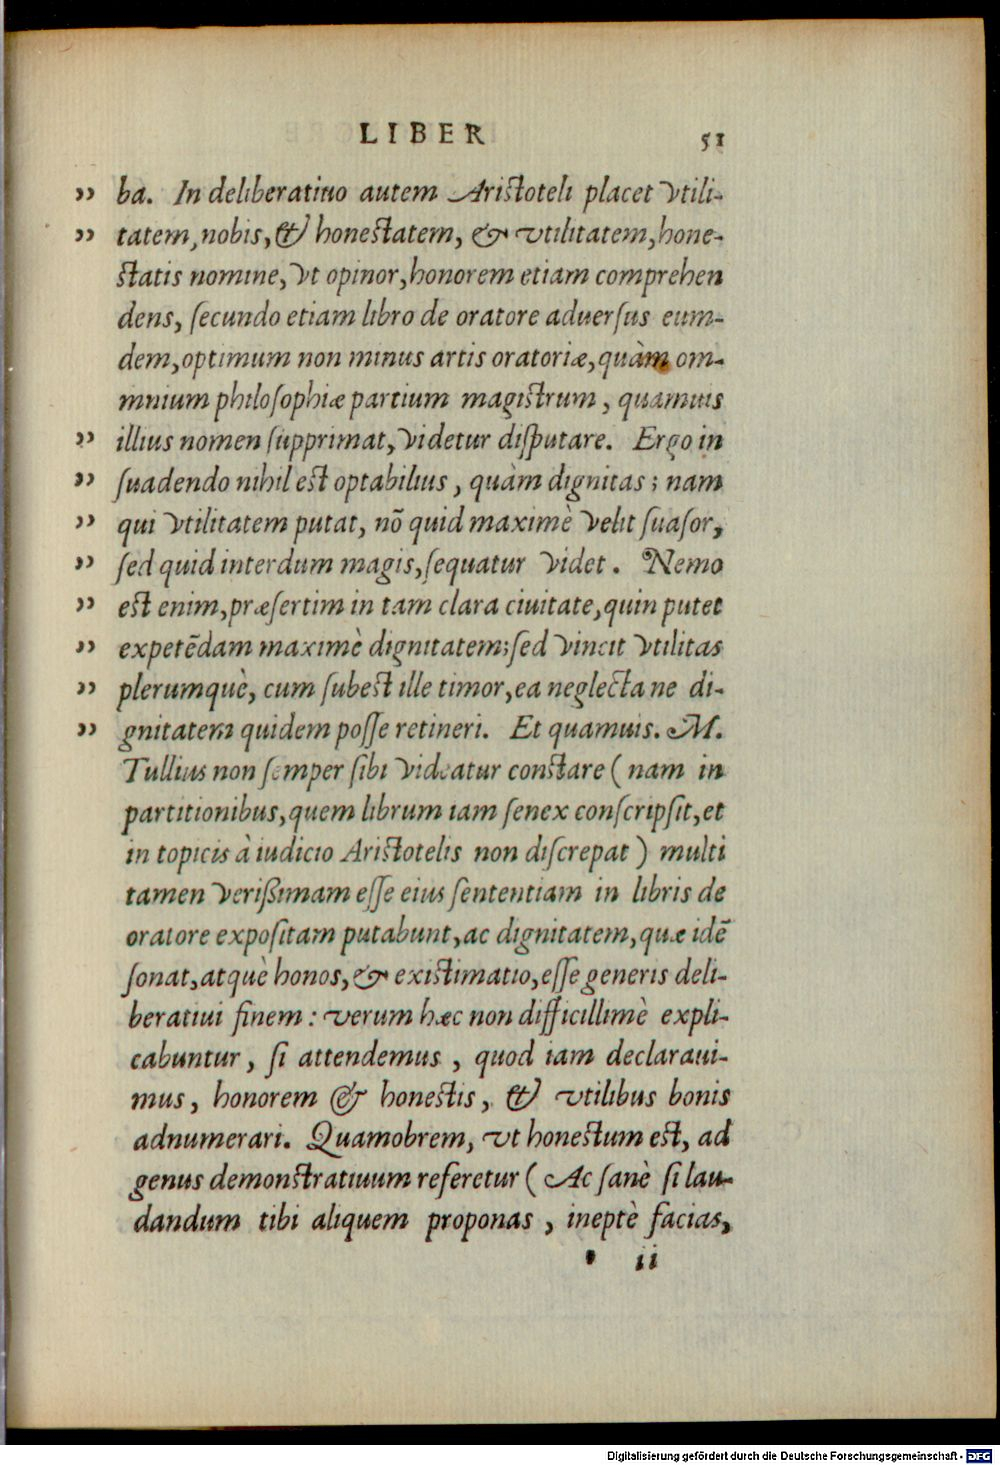 LIBER 51
” ba. In deliberatiuo autem Aristoteli placet vtili-
” tatem, nobis, & honestatem, & vtilitatem, hone-
statis nomine, vt opinor, honorem etiam comprehen
dens, ſecundo etiam libro de oratore aduerſus eum-
dem, optimum non minus artis oratoriæ, quàm om-
mnium philoſophiæ partium magistrum, quamuis
” illius nomen ſupprimat, videtur diſputare. Ergo in
” ſuadendo nihil est optabilius, quàm dignitas; nam
” qui vtilitatem putat, nõ quid maximè velit ſuaſor,
” ſed quid interdum magis, ſequatur videt. Nemo
” est enim, præſertim in tam clara ciuitate, quin putet
” expetẽdam maximè dignitatem; ſed vincit vtilitas
” plerumquè, cum ſubest ille timor, ea neglecta ne di-
” gnitatem quidem poſſe retineri. Et quamuis. M.
Tullius non ſemper ſibi videatur constare (nam in
partitionibus, quem librum iam ſenex conſcripſit, et
in topicis à iudicio Aristotelis non diſcrepat) multi
tamen verißimam eſſe eius ſententiam in libris de
oratore expoſitam putabunt, ac dignitatem, quæ idẽ
ſonat, atquè honos, & existimatio, eſſe generis deli-
beratiui finem: verum hæc non difficillimè expli-
cabuntur, ſi attendemus, quod iam declaraui-
mus, honorem & honestis, & vtilibus bonis
adnumerari. Quamobrem, vt honestum est, ad
genus demonstratiuum referetur (Ac ſanè ſi lau-
dandum tibi aliquem proponas, ineptè facias,
ii
Digitalisierung gefördert durch die Deutsche Forschungsgemeinschaft - DFG